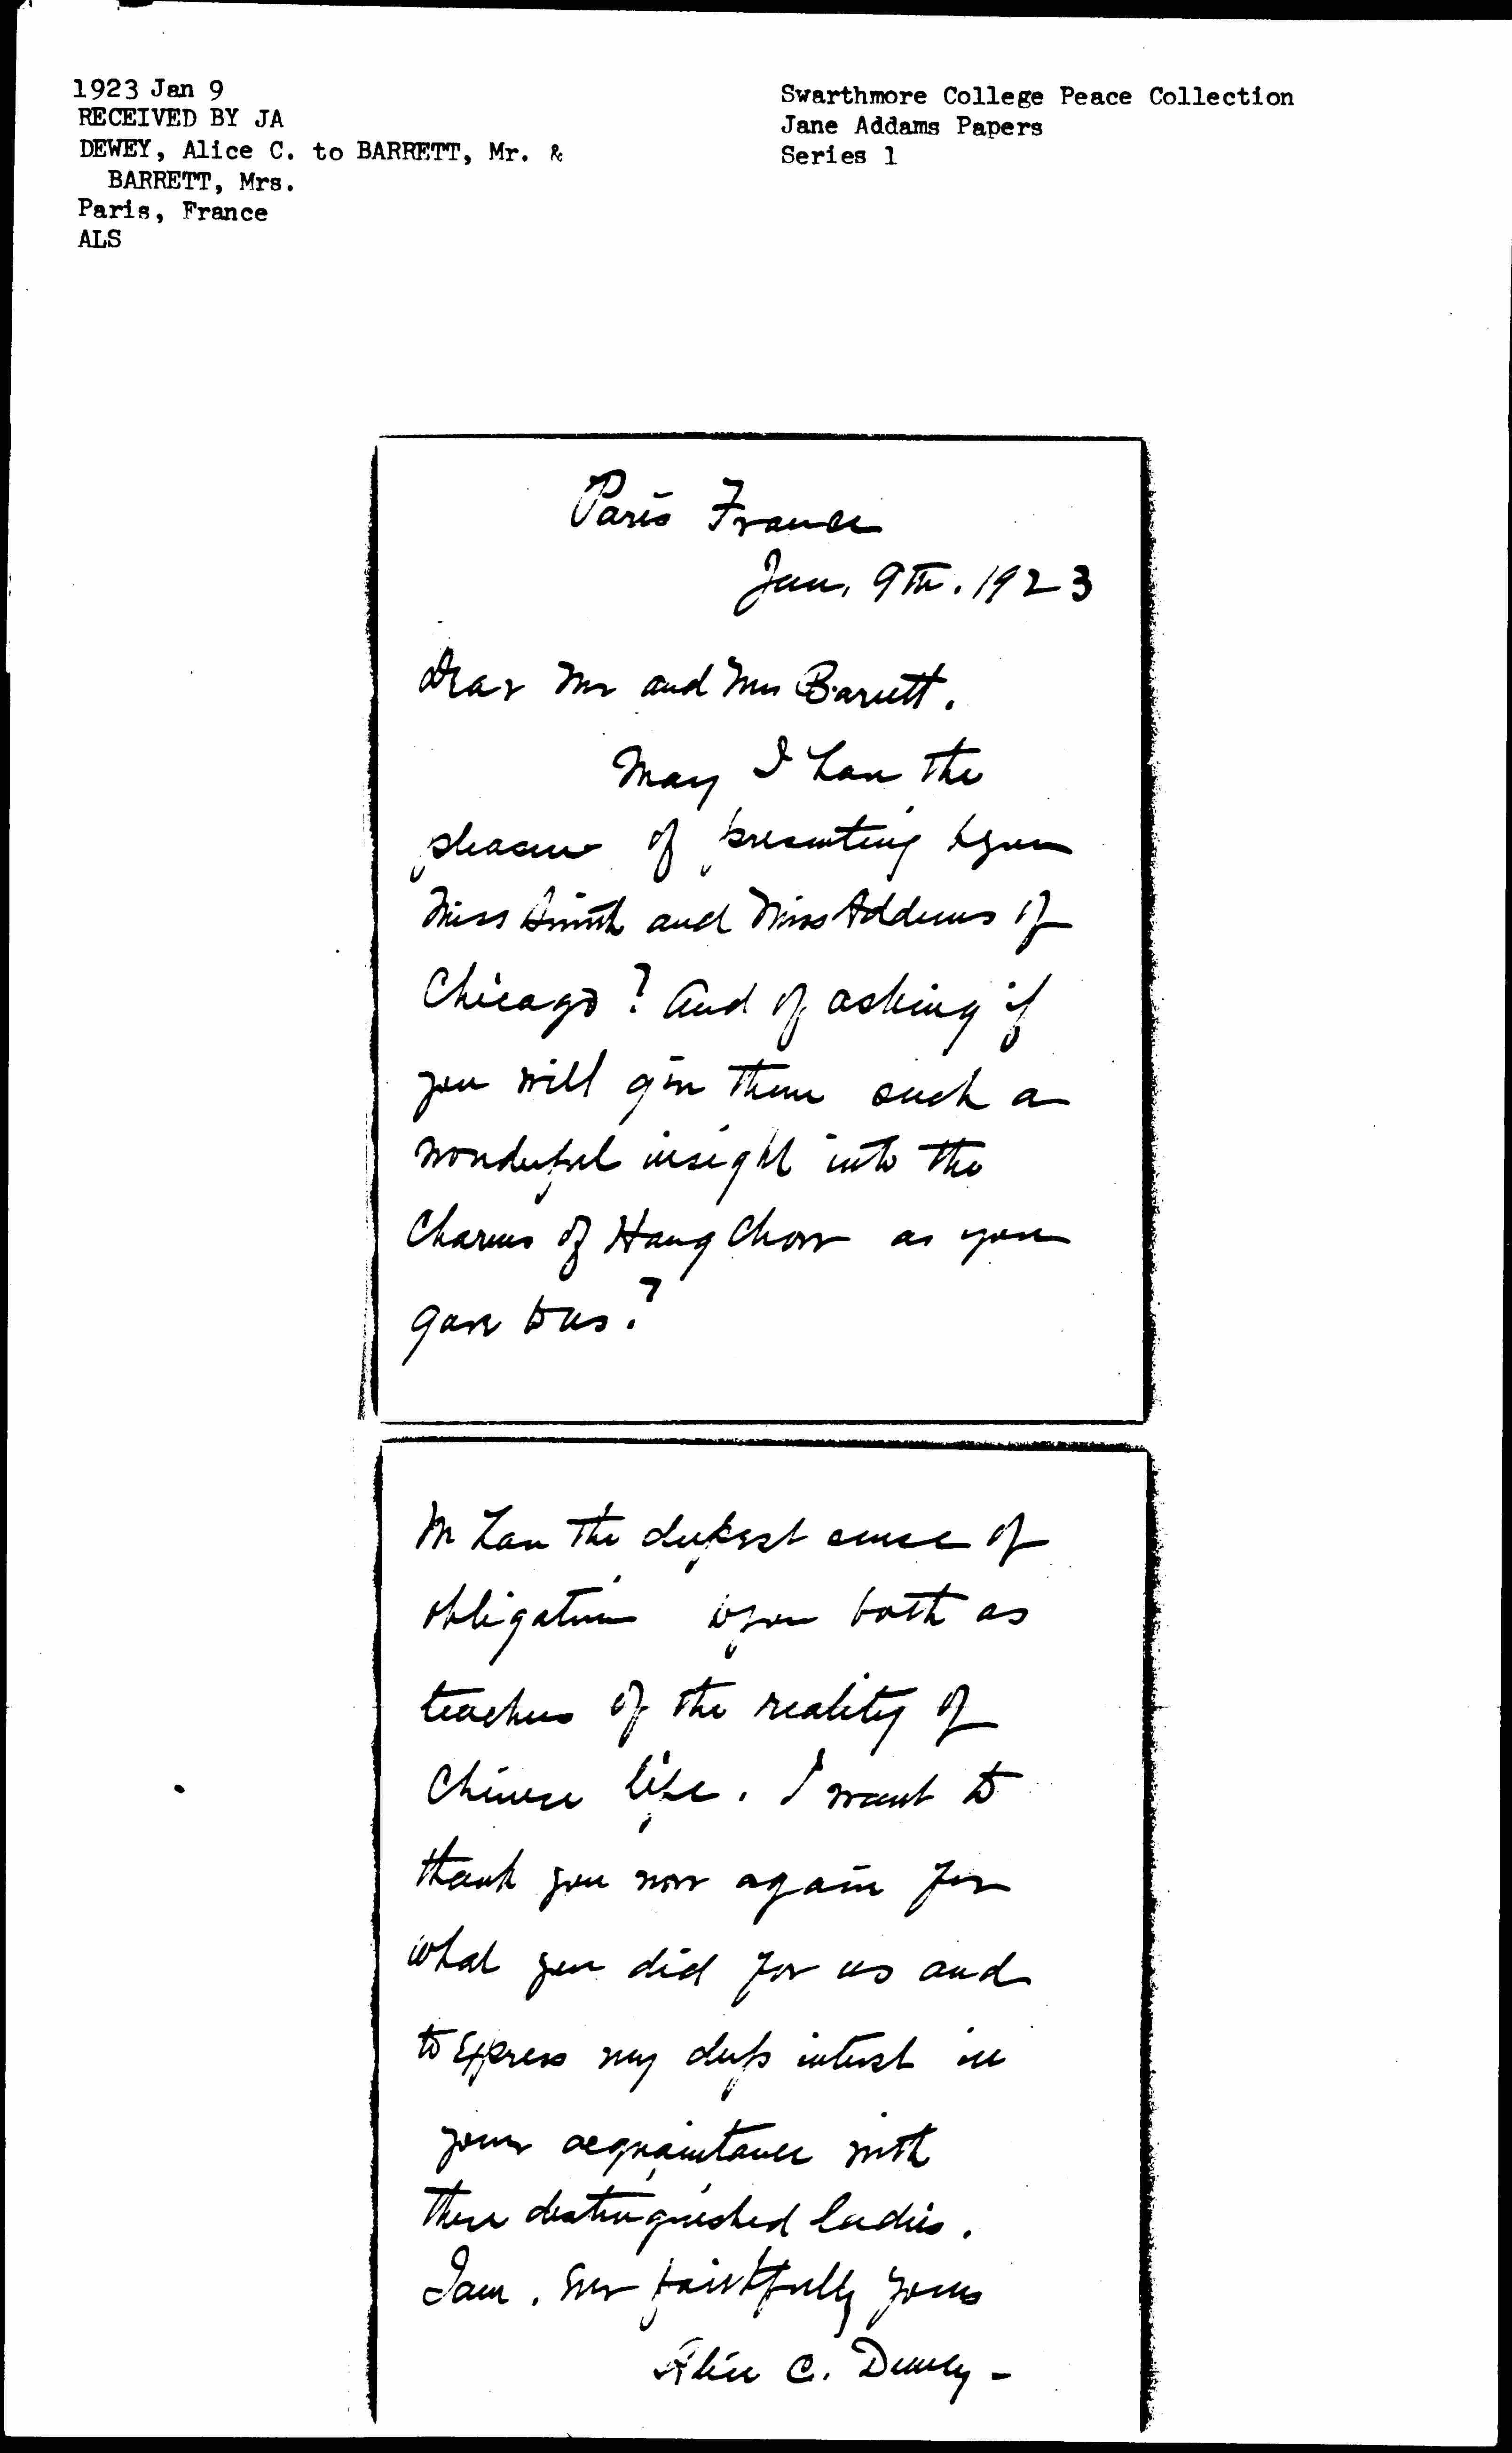 1923 Jan 9
RECEIVED BY JA
DEWEY, Alice C. to BARRETT, Mr. &
BARRETT, Mrs.
Paris, France
ALS
Swarthmore College Peace Collection
Jane Addams Papers
Series 1
Paris France
Jan. 9th. 1923
Dear Mr and Mrs Barrett.
May I have the
pleasure of presenting to you
Miss Smith and Miss Addams of
Chicago? And of asking if
you will give them such a
wonderful insight into the
Charms of Hang Chow as you
gave to us?
We have the deepest sense of
obligation to you both as
teachers of the reality of
Chinese life. I want to
thank you now again for
what you did for us and
to express my deep interest in
your acquaintance with
these distinguished ladies.
I am. Ever faithfully yours
Alice C. Dewey -